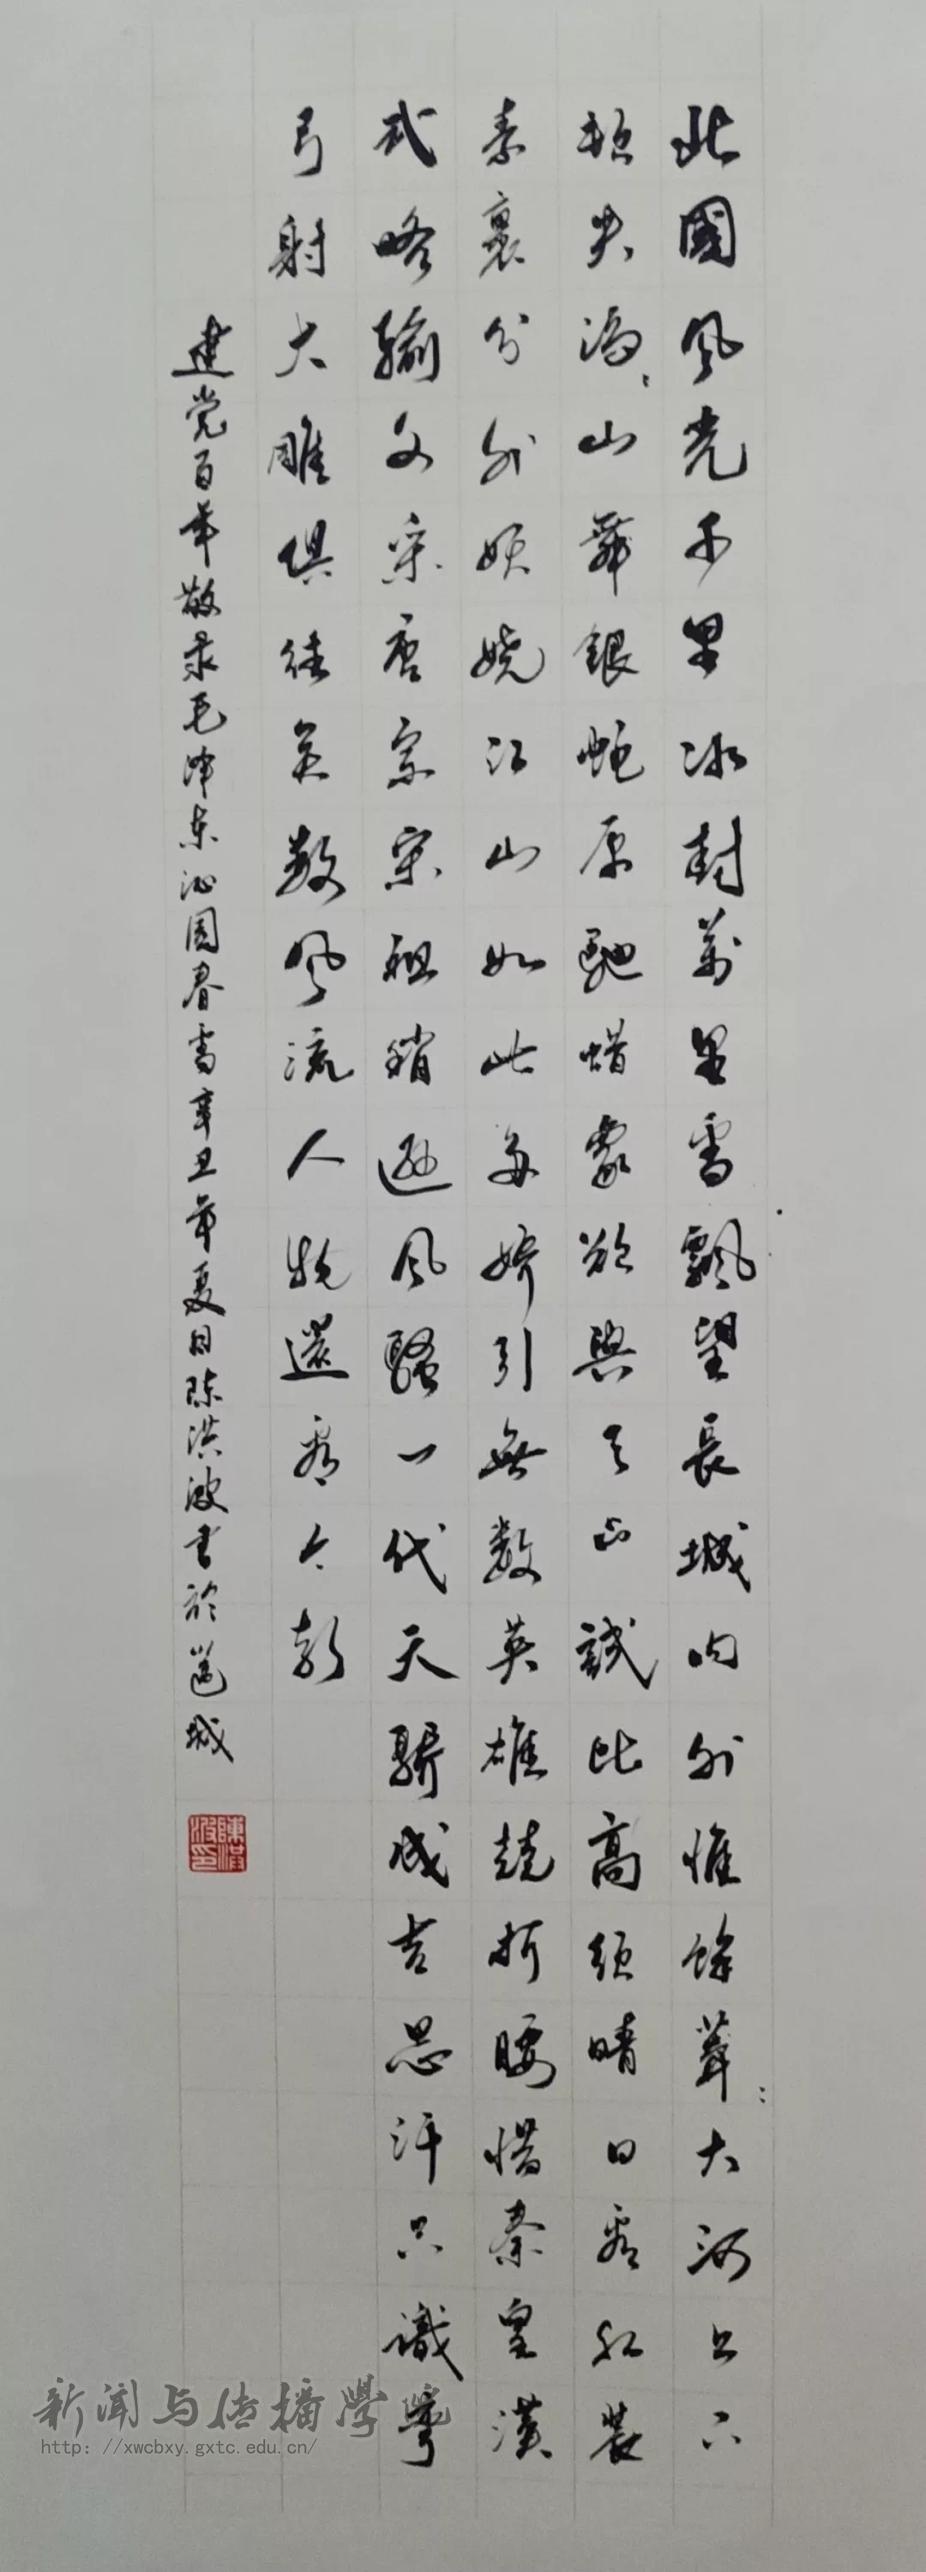 北國风光千里冰封萬里雪飄望長城内外惟餘莽々大河上下
頓失滔々山舞銀蛇原馳蜡象欲與天公試比高须晴日看红装
素裹分外妖娆江山如此多娇引無数英雄競折腰惜秦皇漢
武略输文采唐宗宋祖稍遜风騷一代天驕成吉思汗只識彎
弓射大雕俱往矣数风流人物還看今朝
建党百年敬录毛泽东沁园春雪辛丑年夏日陈洪波书於邕城
陳洪波印
新闻与传播学院
http://xwcbxy.gxtc.edu.cn/